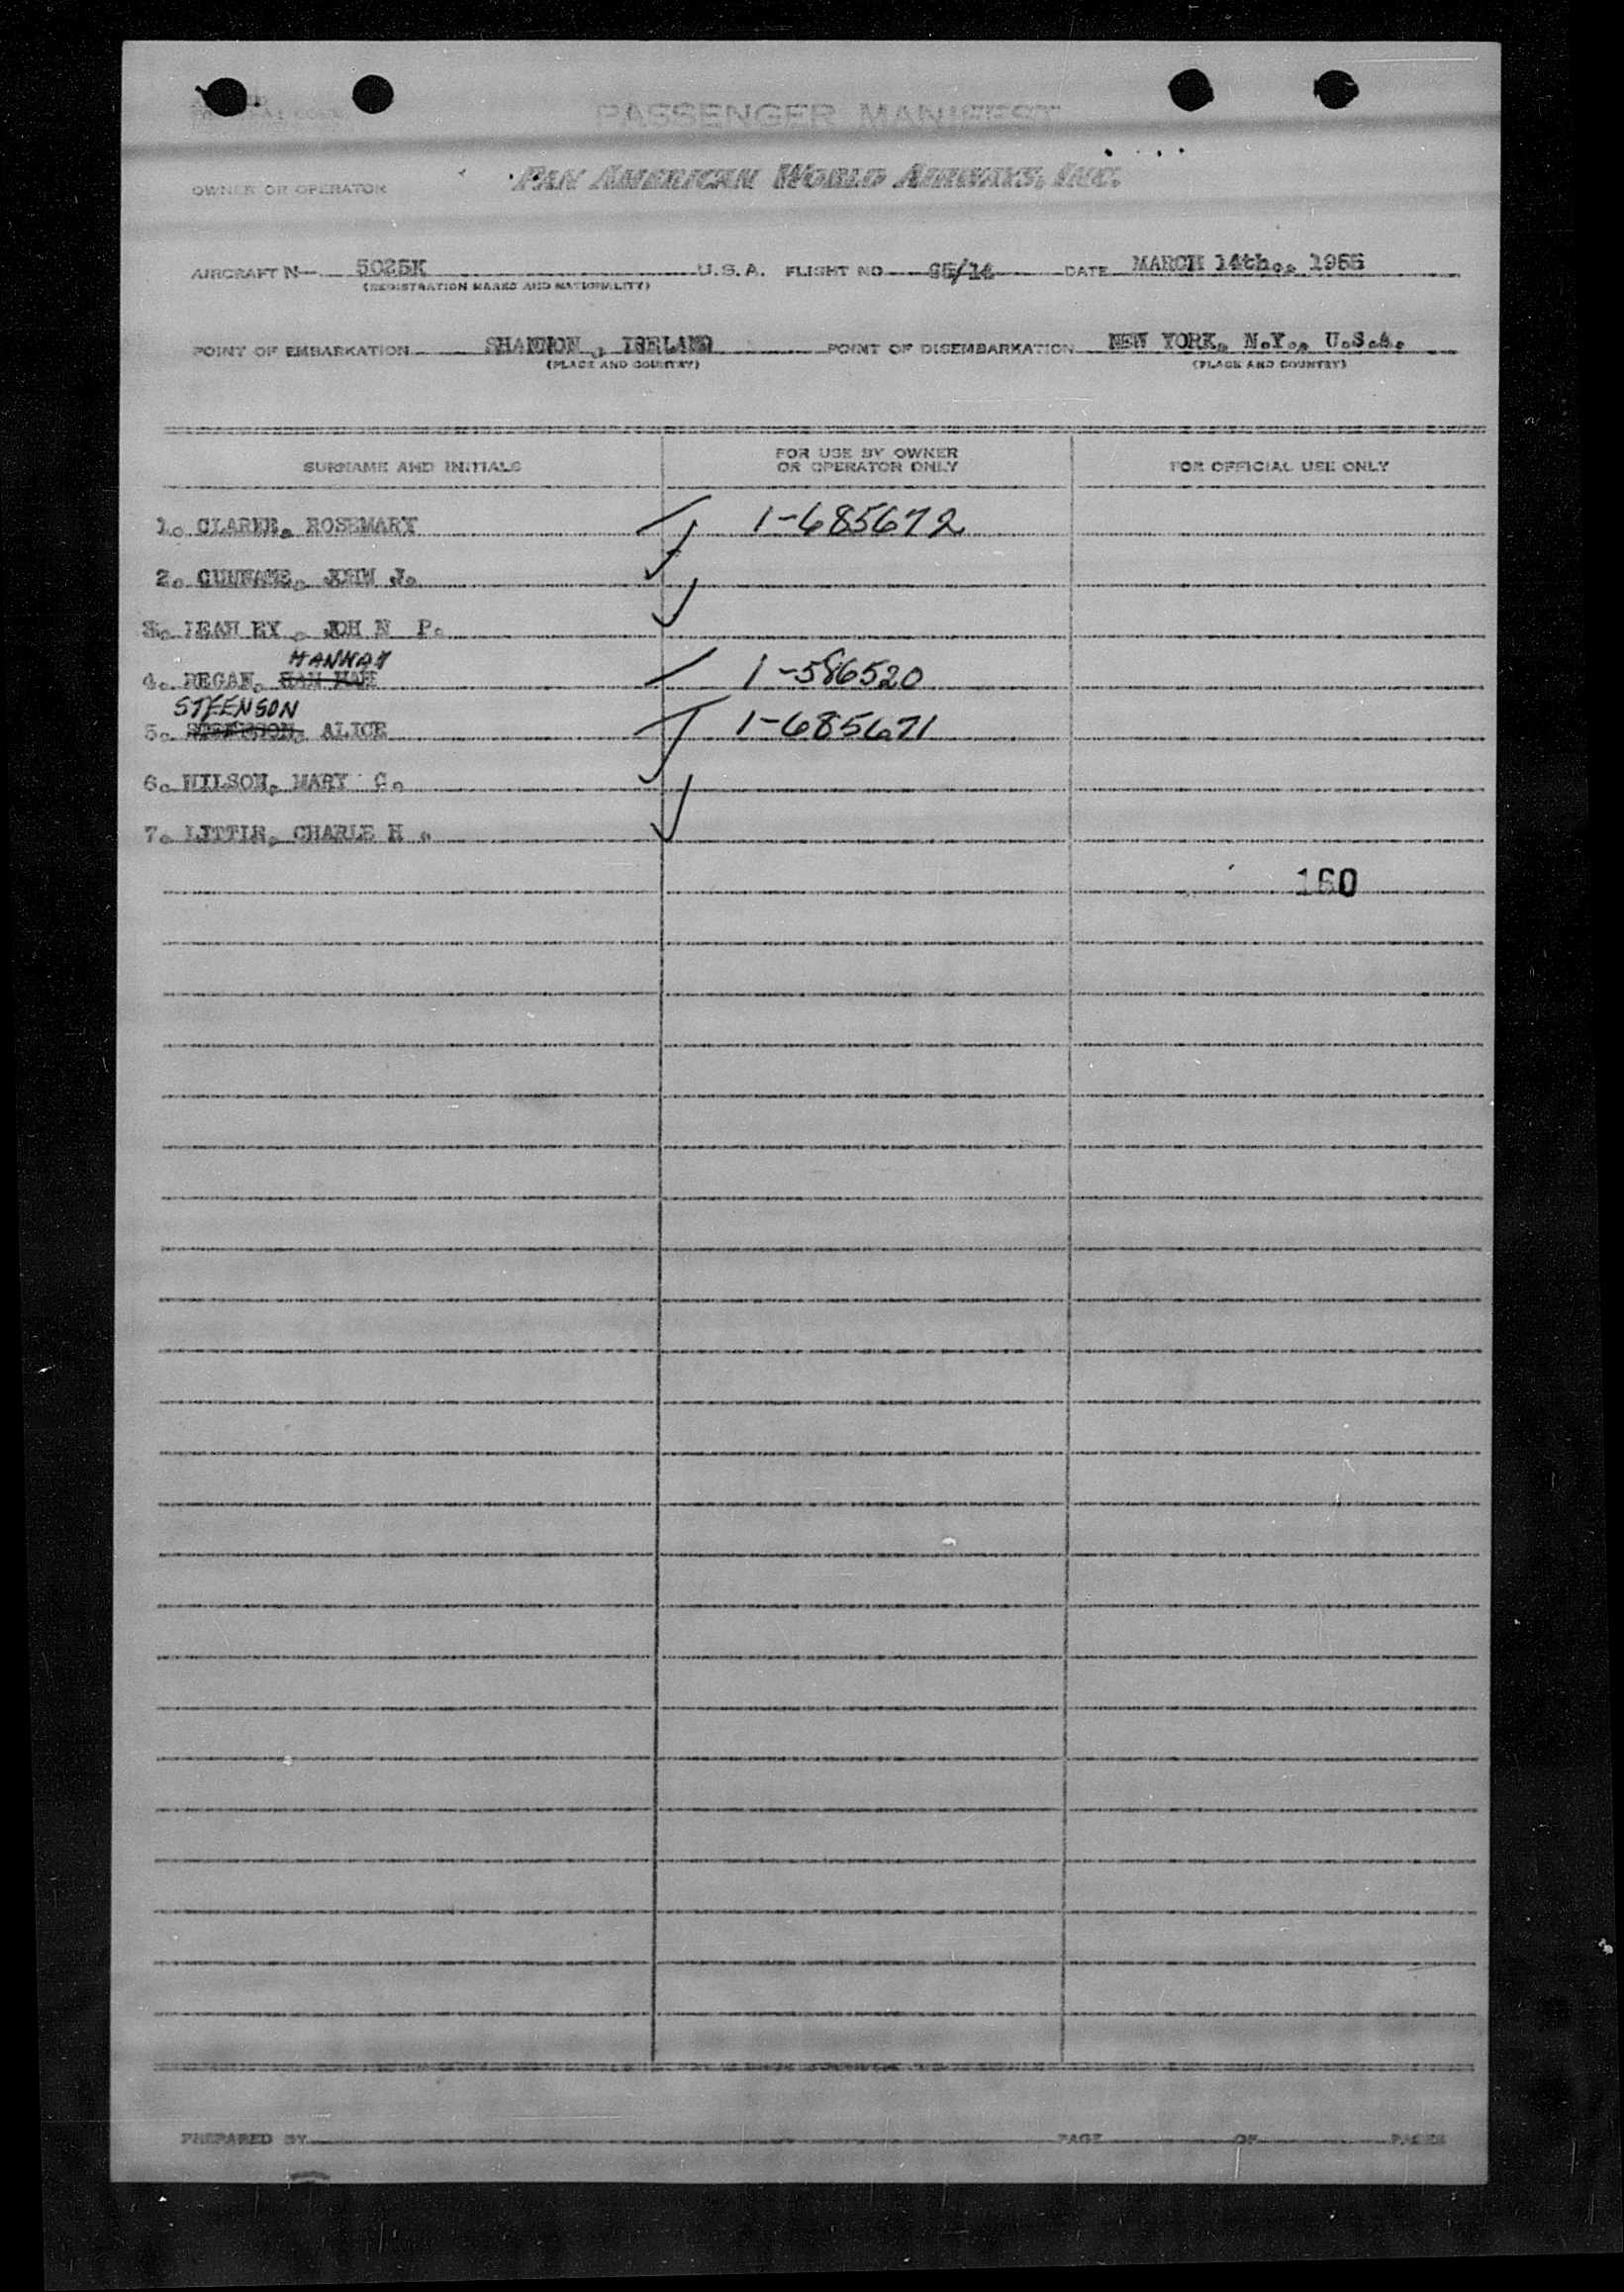 PASSENGER MANIFEST
OWNER OR OPERATOR PAN AMERICAN WORLD AIRWAYS, INC.
AIRCRAFT N 5025K U.S.A. FLIGHT NO DATE MARCH 14th., 1955
(REGISTRATION MARKS AND NATIONALITY)
POINT OF EMBARKATION SHANNON, IRELAND POINT OF DISEMBARKATION NEW YORK, N.Y., U.S.A.
(PLACE AND COUNTRY) (PLACE AND COUNTRY)
SURNAME AND INITIALS FOR USE BY OWNER OR OPERATOR ONLY FOR OFFICIAL USE ONLY
1. CLARKE, ROSEMARY 1-685672
2. JOHN J.
3. JOH N P.
HANNAH
4. REGAN, HAN NAH 1-586520
STEENSON
5. ALICE 1-685671
6. WILSON, MARY C.
7. LITTLE, CHARLE H .
160
PREPARED BY PAGE OF PAGES